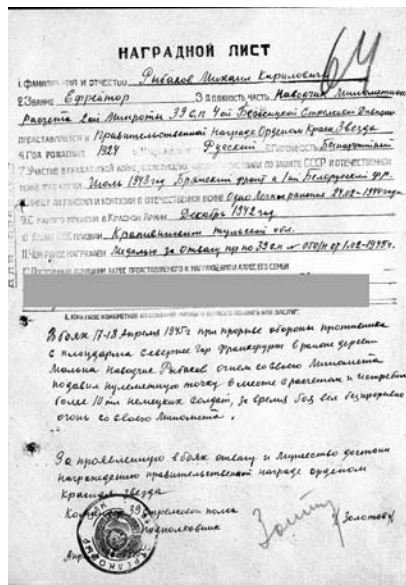 64
НАГРАДНОЙ ЛИСТ
1. ФАМИЛИЯ ИМЯ И ОТЧЕСТВО Рыбаков Михаил Кирилович
2. ЗВАНИЕ Ефрейтор 3. ДОЛЖНОСТЬ ЧАСТЬ Наводчик Минометного
расчета 2ой Минроты 39 с.п. 4ой Бежецкой Стрелковой Дивизии
ПРЕДСТАВЛЯЕТСЯ К Правительственной Награде Орденом Красн Звезда
4. ГОД РОЖДЕНИЯ 1924 Русский Беспартийный
7. УЧАСТИЕ В ГРАЖДАНСКОЙ ВОЙНЕ, ПО ЗАЩИТЕ СССР И ОТЕЧЕСТВЕННОЙ
Июль 1943 год Брянский фронт и 1ый Белорусский фр.
РАНЕНИЯ И КОНТУЗИИ В ОТЕЧЕСТВЕННОЙ ВОЙНЕ Одно Легкое ранение 24.02-1944 года
9. С КАКОГО ВРЕМЕНИ В КРАСНОЙ АРМИИ Декабрь 1942 год
10. ПРИЗВАН Крапивинским Тульской обл.
11. ЧЕМ РАНЕЕ НАГРАЖДЕН Медалью За Отвагу пр по 39 с.п. № 050/н от 1.02-1945г.
12. ПОСТОЯННЫЙ ДОМАШНИЙ АДРЕС ПРЕДСТАВЛЕННОГО К НАГРАЖДЕНИЮ И АДРЕС ЕГО СЕМЬИ
I. КРАТКОЕ КОНКРЕТНОЕ ИЗЛОЖЕНИЕ ЛИЧНОГО ПОДВИГА ИЛИ ЗАСЛУГ:
В боях 17-18 Апреля 1945г при прорыве обороны противника
с плацдарма севернее гор Франкфурт в районе деревни
Мальна Наводчик Рыбаков огнем со своего Миномета
подавил пулеметную точку вместе с расчетом и истребил
более 10ти немецких солдат, за время боя вел безпрерывно
огонь со своего Миномета.
За проявленную в боях отвагу и мужество достоин
награждению правительственной награде орденом
Красная Звезда
39 Стрелкового полка
Подполковник
/Золотов/